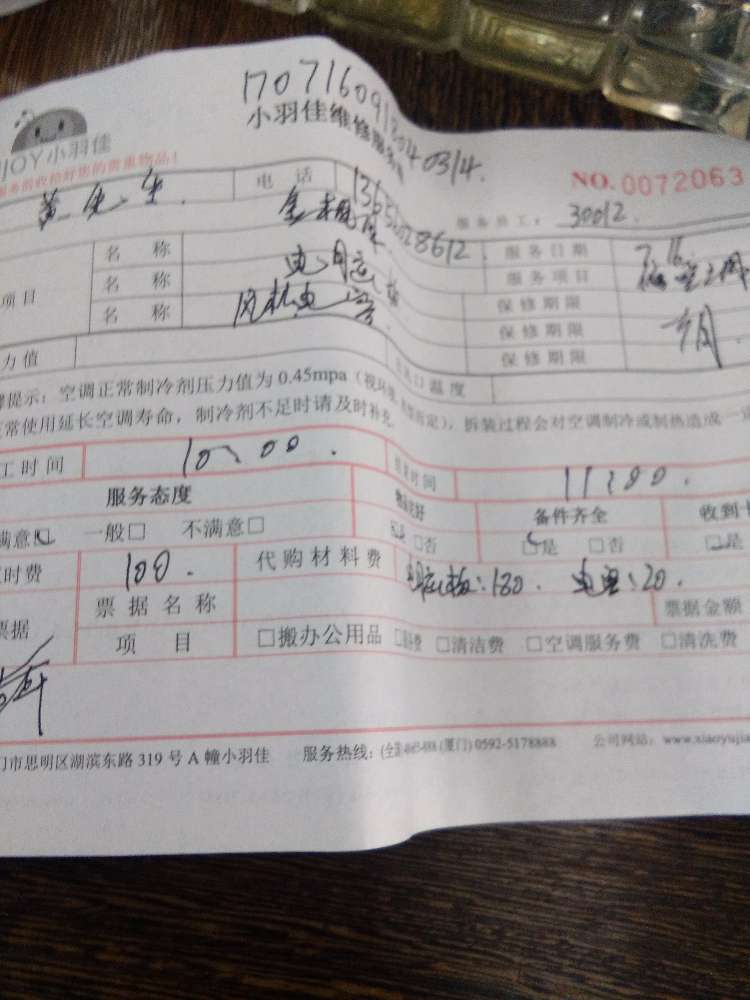 JOY小羽佳
小羽佳维修服务
NO.0072063
黄先生 电话 服务员工: 30012.
名称 服务日期 7.16
项目 名称 服务项目
名称 风机电容 保修期限
保修期限
保修期限
力值 温度
提示：空调正常制冷剂压力值为 0.45mpa（视环境 定），拆装过程会对空调制冷或制热造成一
常使用延长空调寿命，制冷剂不足时请及时补充
工时间 10:00. 时间 11:00.
服务态度 备件齐全 收到
满意☑ 一般□ 不满意□ 是 □否 ☑是 □否 ☑是
时费 100. 代购材料费 :180. 电容:20.
票据 票据名称 票据金额
项目 □搬办公用品 □清洁费 □空调服务费 □清洗费
门市思明区湖滨东路 319 号 A 幢小羽佳 服务热线: (厦门) 0592-5178888 公司网站: www.xiaoyujia